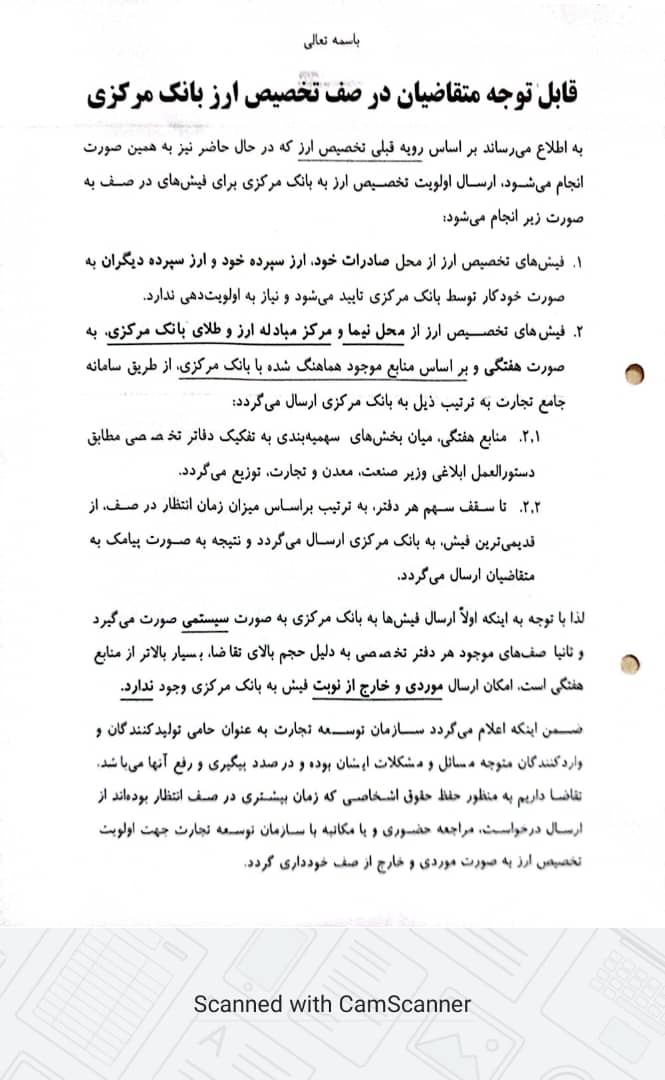 باسمه تعالی
قابل توجه متقاضیان در صف تخصیص ارز بانک مرکزی
به اطلاع می‌رساند بر اساس رویه قبلی تخصیص ارز که در حال حاضر نیز به همین صورت
انجام می‌شود، ارسال اولویت تخصیص ارز به بانک مرکزی برای فیش‌های در صف به
صورت زیر انجام می‌شود:
۱. فیش‌های تخصیص ارز از محل صادرات خود، ارز سپرده خود و ارز سپرده دیگران به
صورت خودکار توسط بانک مرکزی تایید می‌شود و نیاز به اولویت‌دهی ندارد.
۲. فیش‌های تخصیص ارز از محل نیما و مرکز مبادله ارز و طلای بانک مرکزی، به
صورت هفتگی و بر اساس منابع موجود هماهنگ شده با بانک مرکزی، از طریق سامانه
جامع تجارت به ترتیب ذیل به بانک مرکزی ارسال می‌گردد:
۲,۱. منابع هفتگی، میان بخش‌های سهمیه‌بندی به تفکیک دفاتر تخصصی مطابق
دستورالعمل ابلاغی وزیر صنعت، معدن و تجارت، توزیع می‌گردد.
۲,۲. تا سقف سهم هر دفتر، به ترتیب براساس میزان زمان انتظار در صف، از
قدیمی‌ترین فیش، به بانک مرکزی ارسال می‌گردد و نتیجه به صورت پیامک به
متقاضیان ارسال می‌گردد.
لذا با توجه به اینکه اولاً ارسال فیش‌ها به بانک مرکزی به صورت سیستمی صورت می‌گیرد
و ثانیا صف‌های موجود هر دفتر تخصصی به دلیل حجم بالای تقاضا، بسیار بالاتر از منابع
هفتگی است، امکان ارسال موردی و خارج از نوبت فیش به بانک مرکزی وجود ندارد.
ضمن اینکه اعلام می‌گردد سازمان توسعه تجارت به عنوان حامی تولیدکنندگان و
واردکنندگان متوجه مسائل و مشکلات ایشان بوده و در صدد پیگیری و رفع آنها می‌باشد،
تقاضا داریم به منظور حفظ حقوق اشخاصی که زمان بیشتری در صف انتظار بوده‌اند از
ارسال درخواست، مراجعه حضوری و یا مکاتبه با سازمان توسعه تجارت جهت اولویت
تخصیص ارز به صورت موردی و خارج از صف خودداری گردد.
Scanned with CamScanner